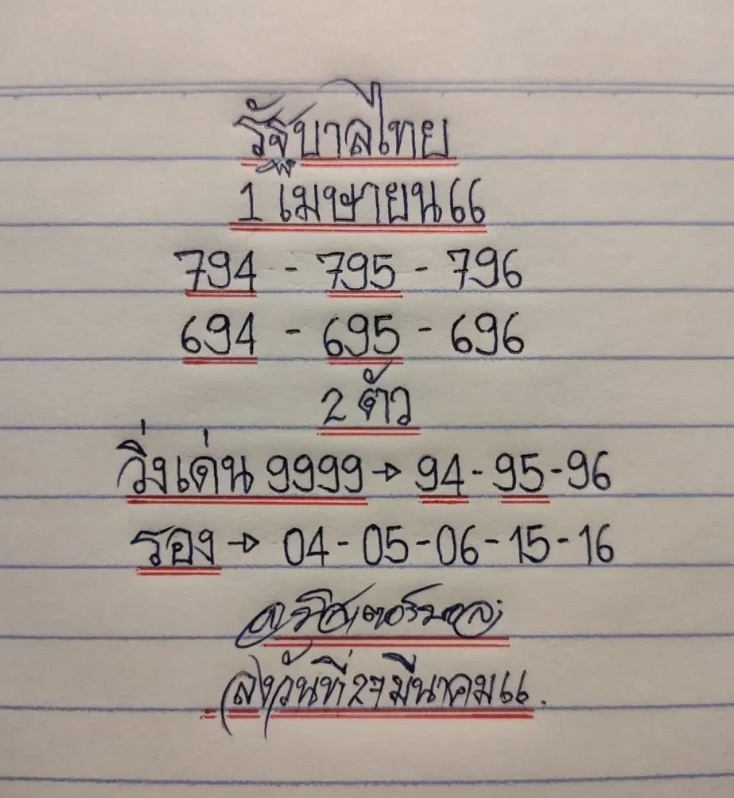 รัฐบาลไทย
1 เมษายน 66
794 - 795 - 796
694 - 695 - 696
2 ตัว
วิ่งเด่น 9999 → 94 - 95 - 96
รอง → 04 - 05 - 06 - 15 - 16
ลงวันที่ 27 มีนาคม 66.